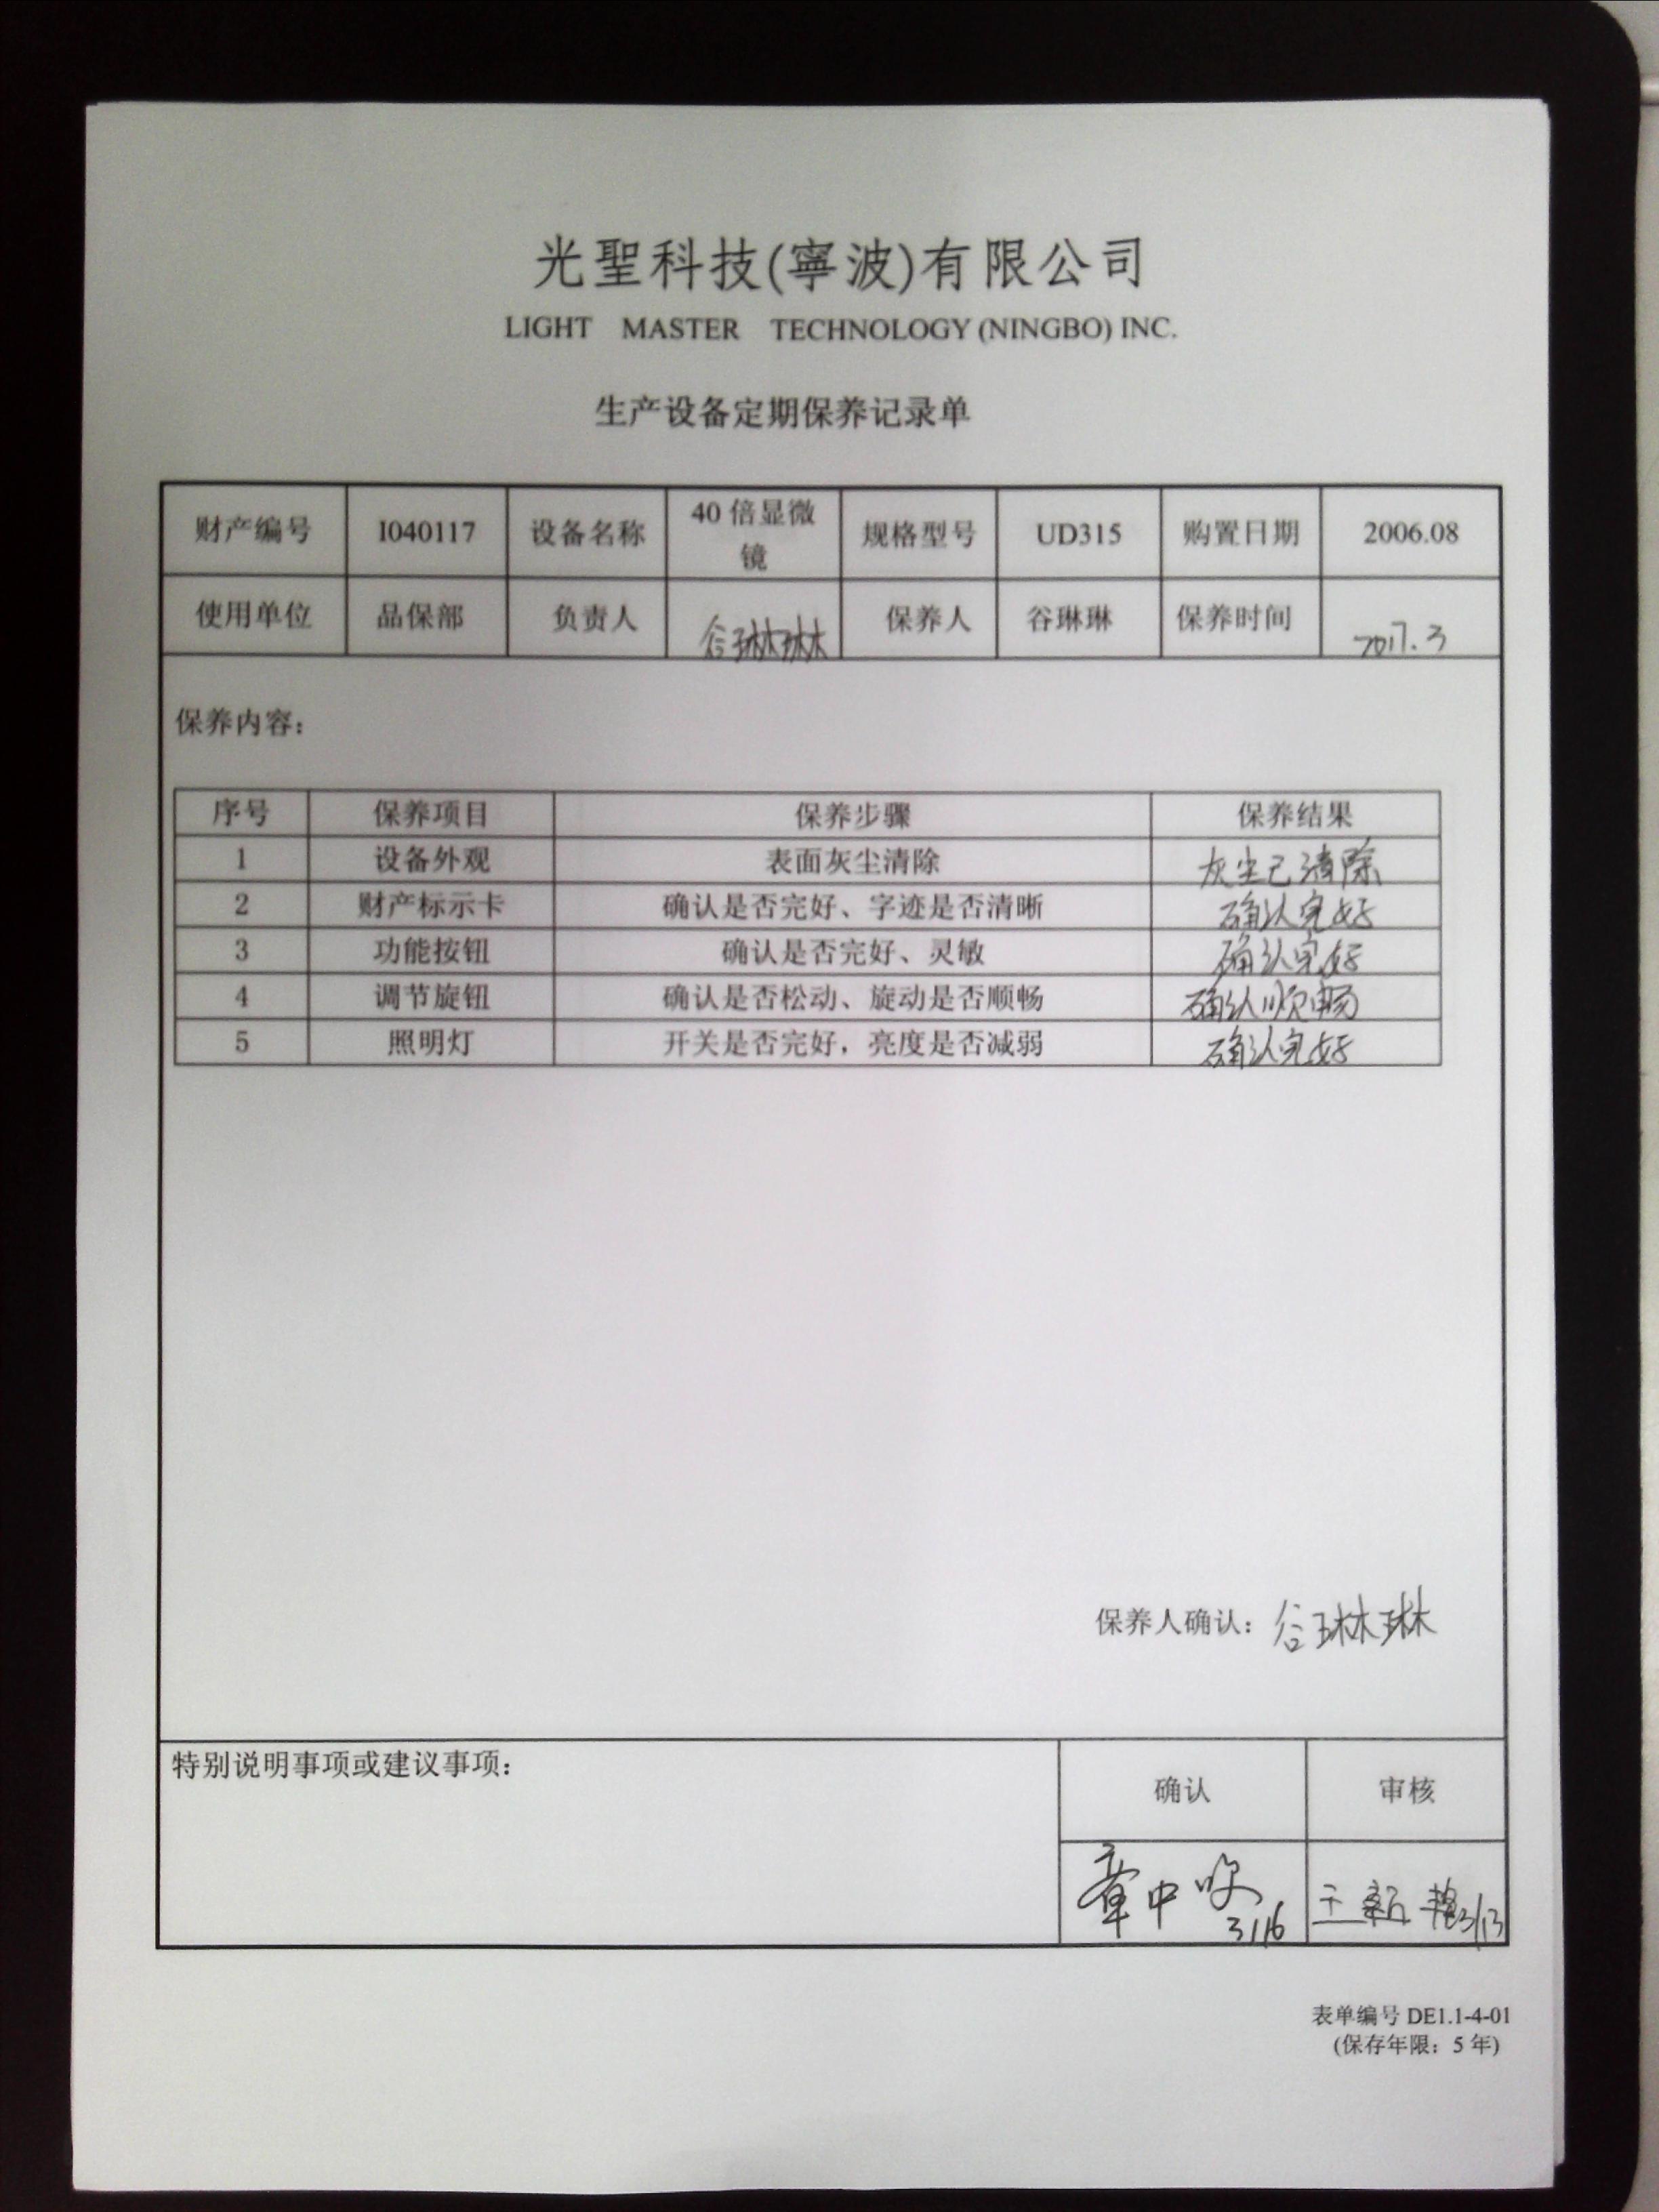 光聖科技(寧波)有限公司
LIGHT MASTER TECHNOLOGY (NINGBO) INC.
生产设备定期保养记录单
财产编号 I040117 设备名称 40 倍显微镜 规格型号 UD315 购置日期 2006.08
使用单位 品保部 负责人 谷琳琳 保养人 谷琳琳 保养时间 2017.3
保养内容：
序号 保养项目 保养步骤 保养结果
1 设备外观 表面灰尘清除 灰尘已清除
2 财产标示卡 确认是否完好、字迹是否清晰 确认完好
3 功能按钮 确认是否完好、灵敏 确认完好
4 调节旋钮 确认是否松动、旋动是否顺畅 确认顺畅
5 照明灯 开关是否完好，亮度是否减弱 确认完好
保养人确认：谷琳琳
特别说明事项或建议事项：
确认 审核
章中 3/16 王新 3/13
表单编号 DE1.1-4-01
(保存年限：5 年)